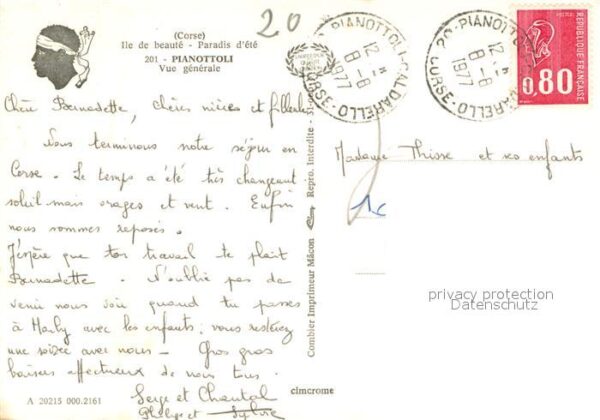 (Corse)
Ile de beauté - Paradis d'été
201 - PIANOTTOLI
Vue générale
20
Chère Bernadette, chères nièces et filleule
Nous terminons notre séjour en
Corse. Le temps a été très changeant
soleil mais orages et vent. Enfin
nous sommes reposés.
J'espère que ton travail te plaît
Bernadette. N'oublie pas de
venir nous voir quand tu passes
à Marly avec les enfants, vous resterez
une soirée avec nous - Gros gros
baisers affectueux de nous tous.
Serge et Chantal
Philippe et Sylvie
A 20215 000.2161
cimcrome
Combier Imprimeur Mâcon
Repro. Interdite
20 - PIANOTTOLI-CALDARELLO
12 H
8-8
1977
CORSE
20 - PIANOTTOLI-CALDARELLO
12 H
8-8
1977
CORSE
POSTES
0,80
REPUBLIQUE FRANÇAISE
Madame Thisse et ses enfants
1c
privacy protection
Datenschutz